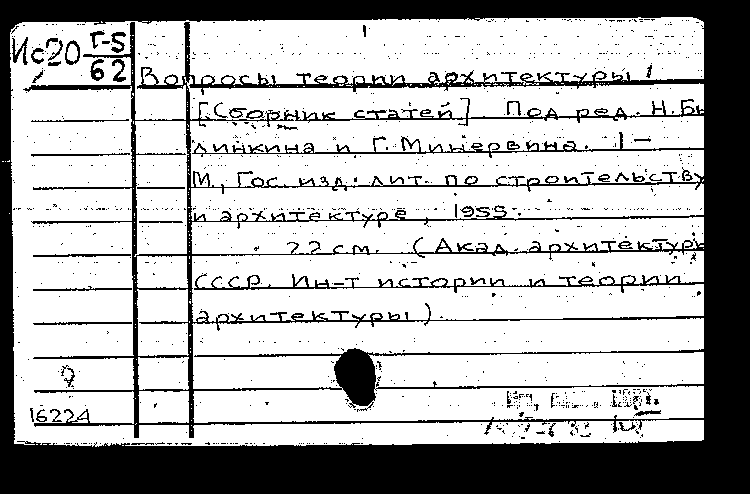 Ис20 Г-5
62
Вопросы теории архитектуры /
[Сборник статей]. Под ред. Н.Бы
линкина и Г. Минервина. 1 —
М., Гос. изд. лит. по строительству
и архитектуре, 1955.
22 см. (Акад. архитектуры
СССР. Ин-т истории и теории
архитектуры)
16224